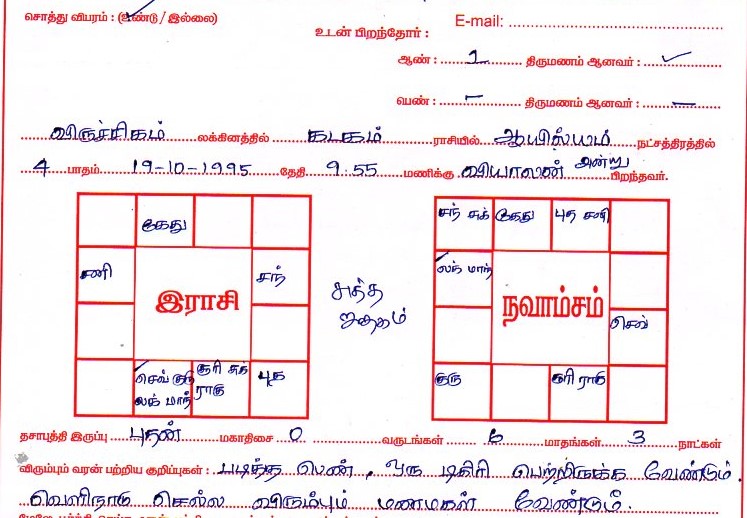 சொத்து விபரம் : (உண்டு / இல்லை)
E-mail:
உடன் பிறந்தோர் :
ஆண் : 1 திருமணம் ஆனவர் : ✓
பெண் : – திருமணம் ஆனவர் : –
விருச்சிகம் லக்கினத்தில் கடகம் ராசியில் ஆயில்யம் நட்சத்திரத்தில்
4 பாதம் 19-10-1995 தேதி 9.55 மணிக்கு வியாழன் அன்று பிறந்தவர்.
கேது
சனி
சந்
இராசி
செவ் குரு
லக் மாந்
சூரி சுக்
ராகு
புத
சுத்த
ஜாதகம்
சந் சுக்
கேது
புத சனி
லக் மாந்
நவாம்சம்
செவ்
குரு
சூரி ராகு
தசாபுத்தி இருப்பு புதன் மகாதிசை 0 வருடங்கள் 6 மாதங்கள் 3 நாட்கள்
விரும்பும் வரன் பற்றிய குறிப்புகள் : படித்த பெண், ஒரு டிகிரி பெற்றிருக்க வேண்டும்.
வெளிநாடு செல்ல விரும்பும் மணமகள் வேண்டும்.